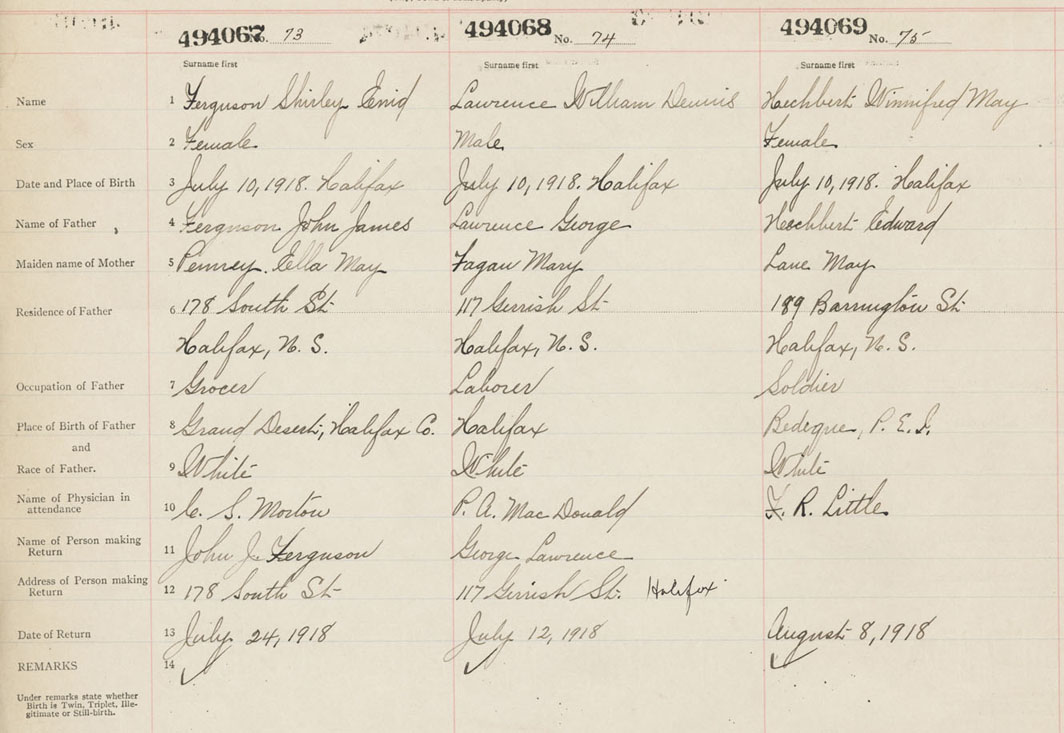 494067 No. 73 494068 No. 74 494069 No. 75
Surname first Surname first Surname first
Name 1 Ferguson Shirley Enid Lawrence William Dennis Hechbert Winnifred May
Sex 2 Female Male Female
Date and Place of Birth 3 July 10, 1918. Halifax July 10, 1918. Halifax July 10, 1918. Halifax
Name of Father 4 Ferguson John James Lawrence George Hechbert Edward
Maiden name of Mother 5 Penney. Ella May Fagan Mary Lane May
Residence of Father 6 178 South St 117 Gerrish St 189 Barrington St
Halifax, N. S. Halifax, N. S. Halifax, N. S.
Occupation of Father 7 Grocer Laborer Soldier
Place of Birth of Father 8 Grand Desert, Halifax Co. Halifax Bedeque, P. E. I.
and
Race of Father. 9 White White White
Name of Physician in
attendance 10 C. S. Morton P. A. MacDonald F. R. Little
Name of Person making
Return 11 John J. Ferguson George Lawrence
Address of Person making
Return 12 178 South St 117 Gerrish St. Halifax
Date of Return 13 July 24, 1918 July 12, 1918 August 8, 1918
REMARKS 14
Under remarks state whether
Birth is Twin, Triplet, Ille-
gitimate or Still-birth.